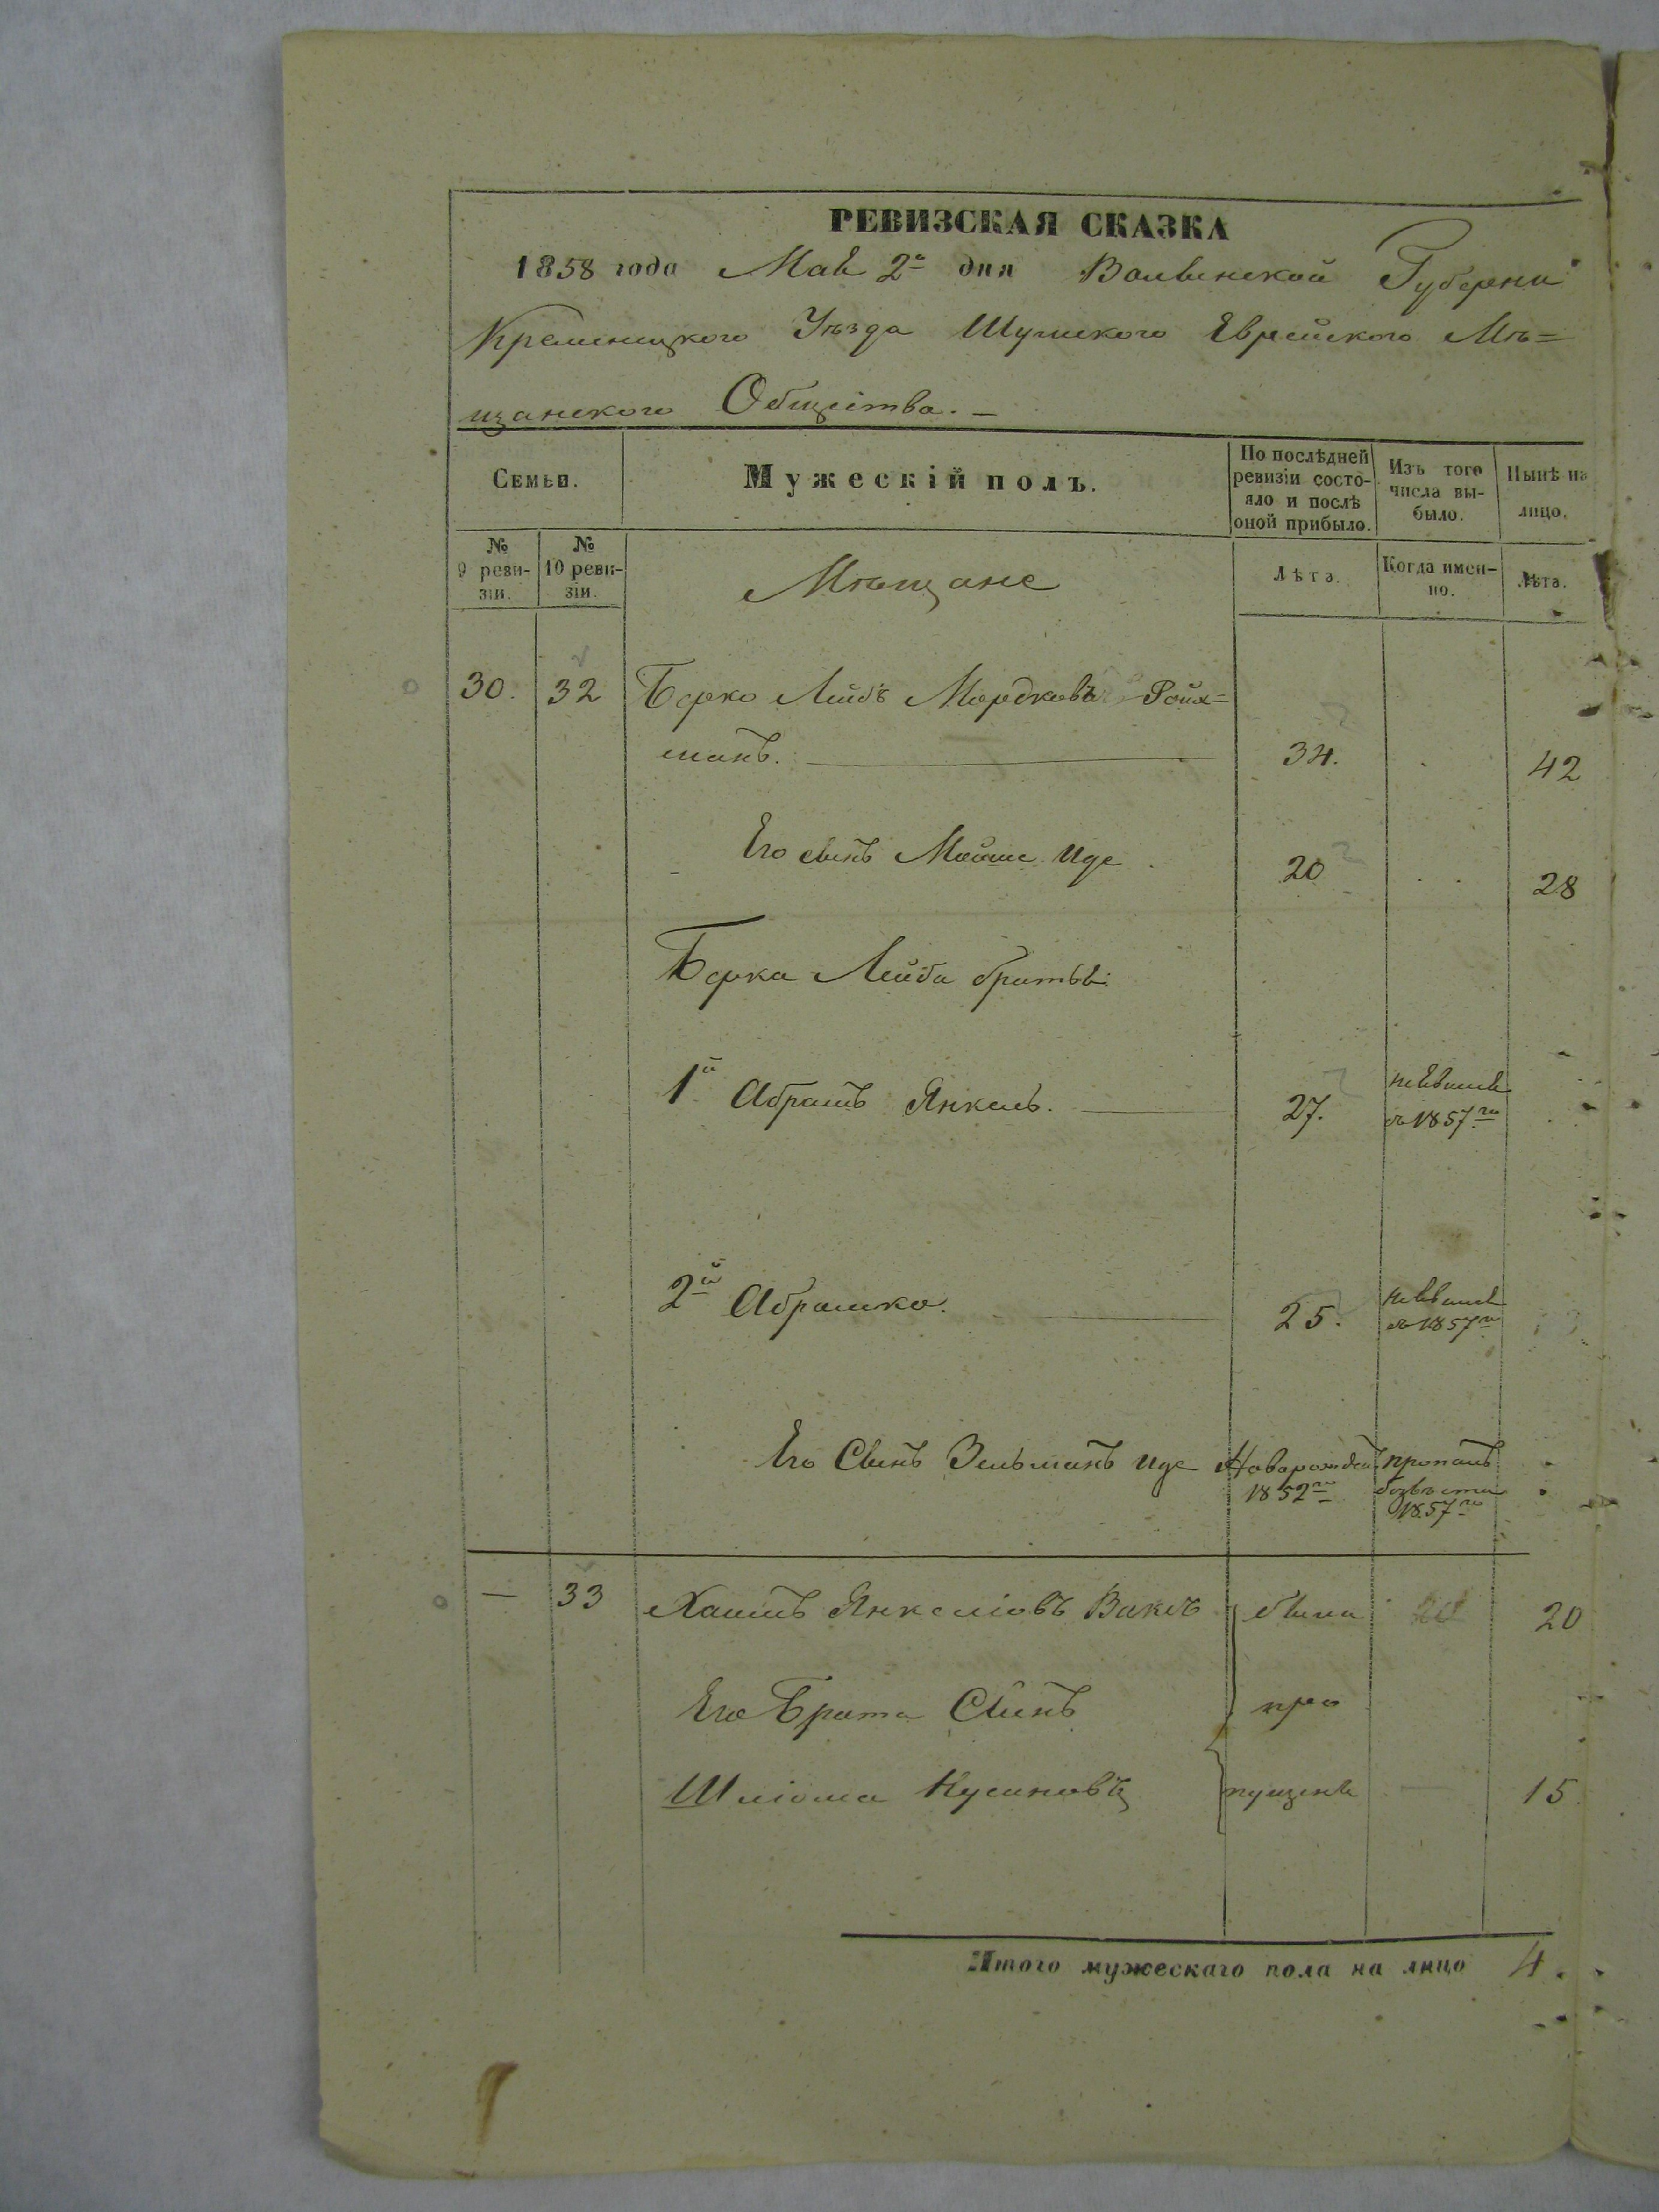 РЕВИЗСКАЯ СКАЗКА
1858 года Мая 2го дня Волынской Губерни
Кременецкого Уѣзда Шумского Еврейского Мѣ=
щанского Общества. —
Семьи.
Мужескій полъ.
По послѣдней ревизіи состо-
яло и послѣ оной прибыло.
Изъ того числа вы-
было.
Нынѣ на лицо.
№ 9 реви-
зіи.
№ 10 реви-
зіи.
Мѣщане
Лѣта.
Когда имен-
но.
Лѣта.
30. 32 Берко Лейбъ Мордковъ
манъ. 34. 42
Его сынъ Мойше Иде 20 28
Берка Лейба братья:
1й Абрамъ Янкель. 27.
1857го
2й Абрамко. 25.
1857го
Его Сынъ Зельманъ Иде Новорожден пропалъ
1852го безвѣсти
1857го
— 33 Хаимъ Янкеліовъ были 20
Его Брата Сынъ про
Шліома Нусиновъ пущены — 15
Итого мужескаго пола на лицо 4.